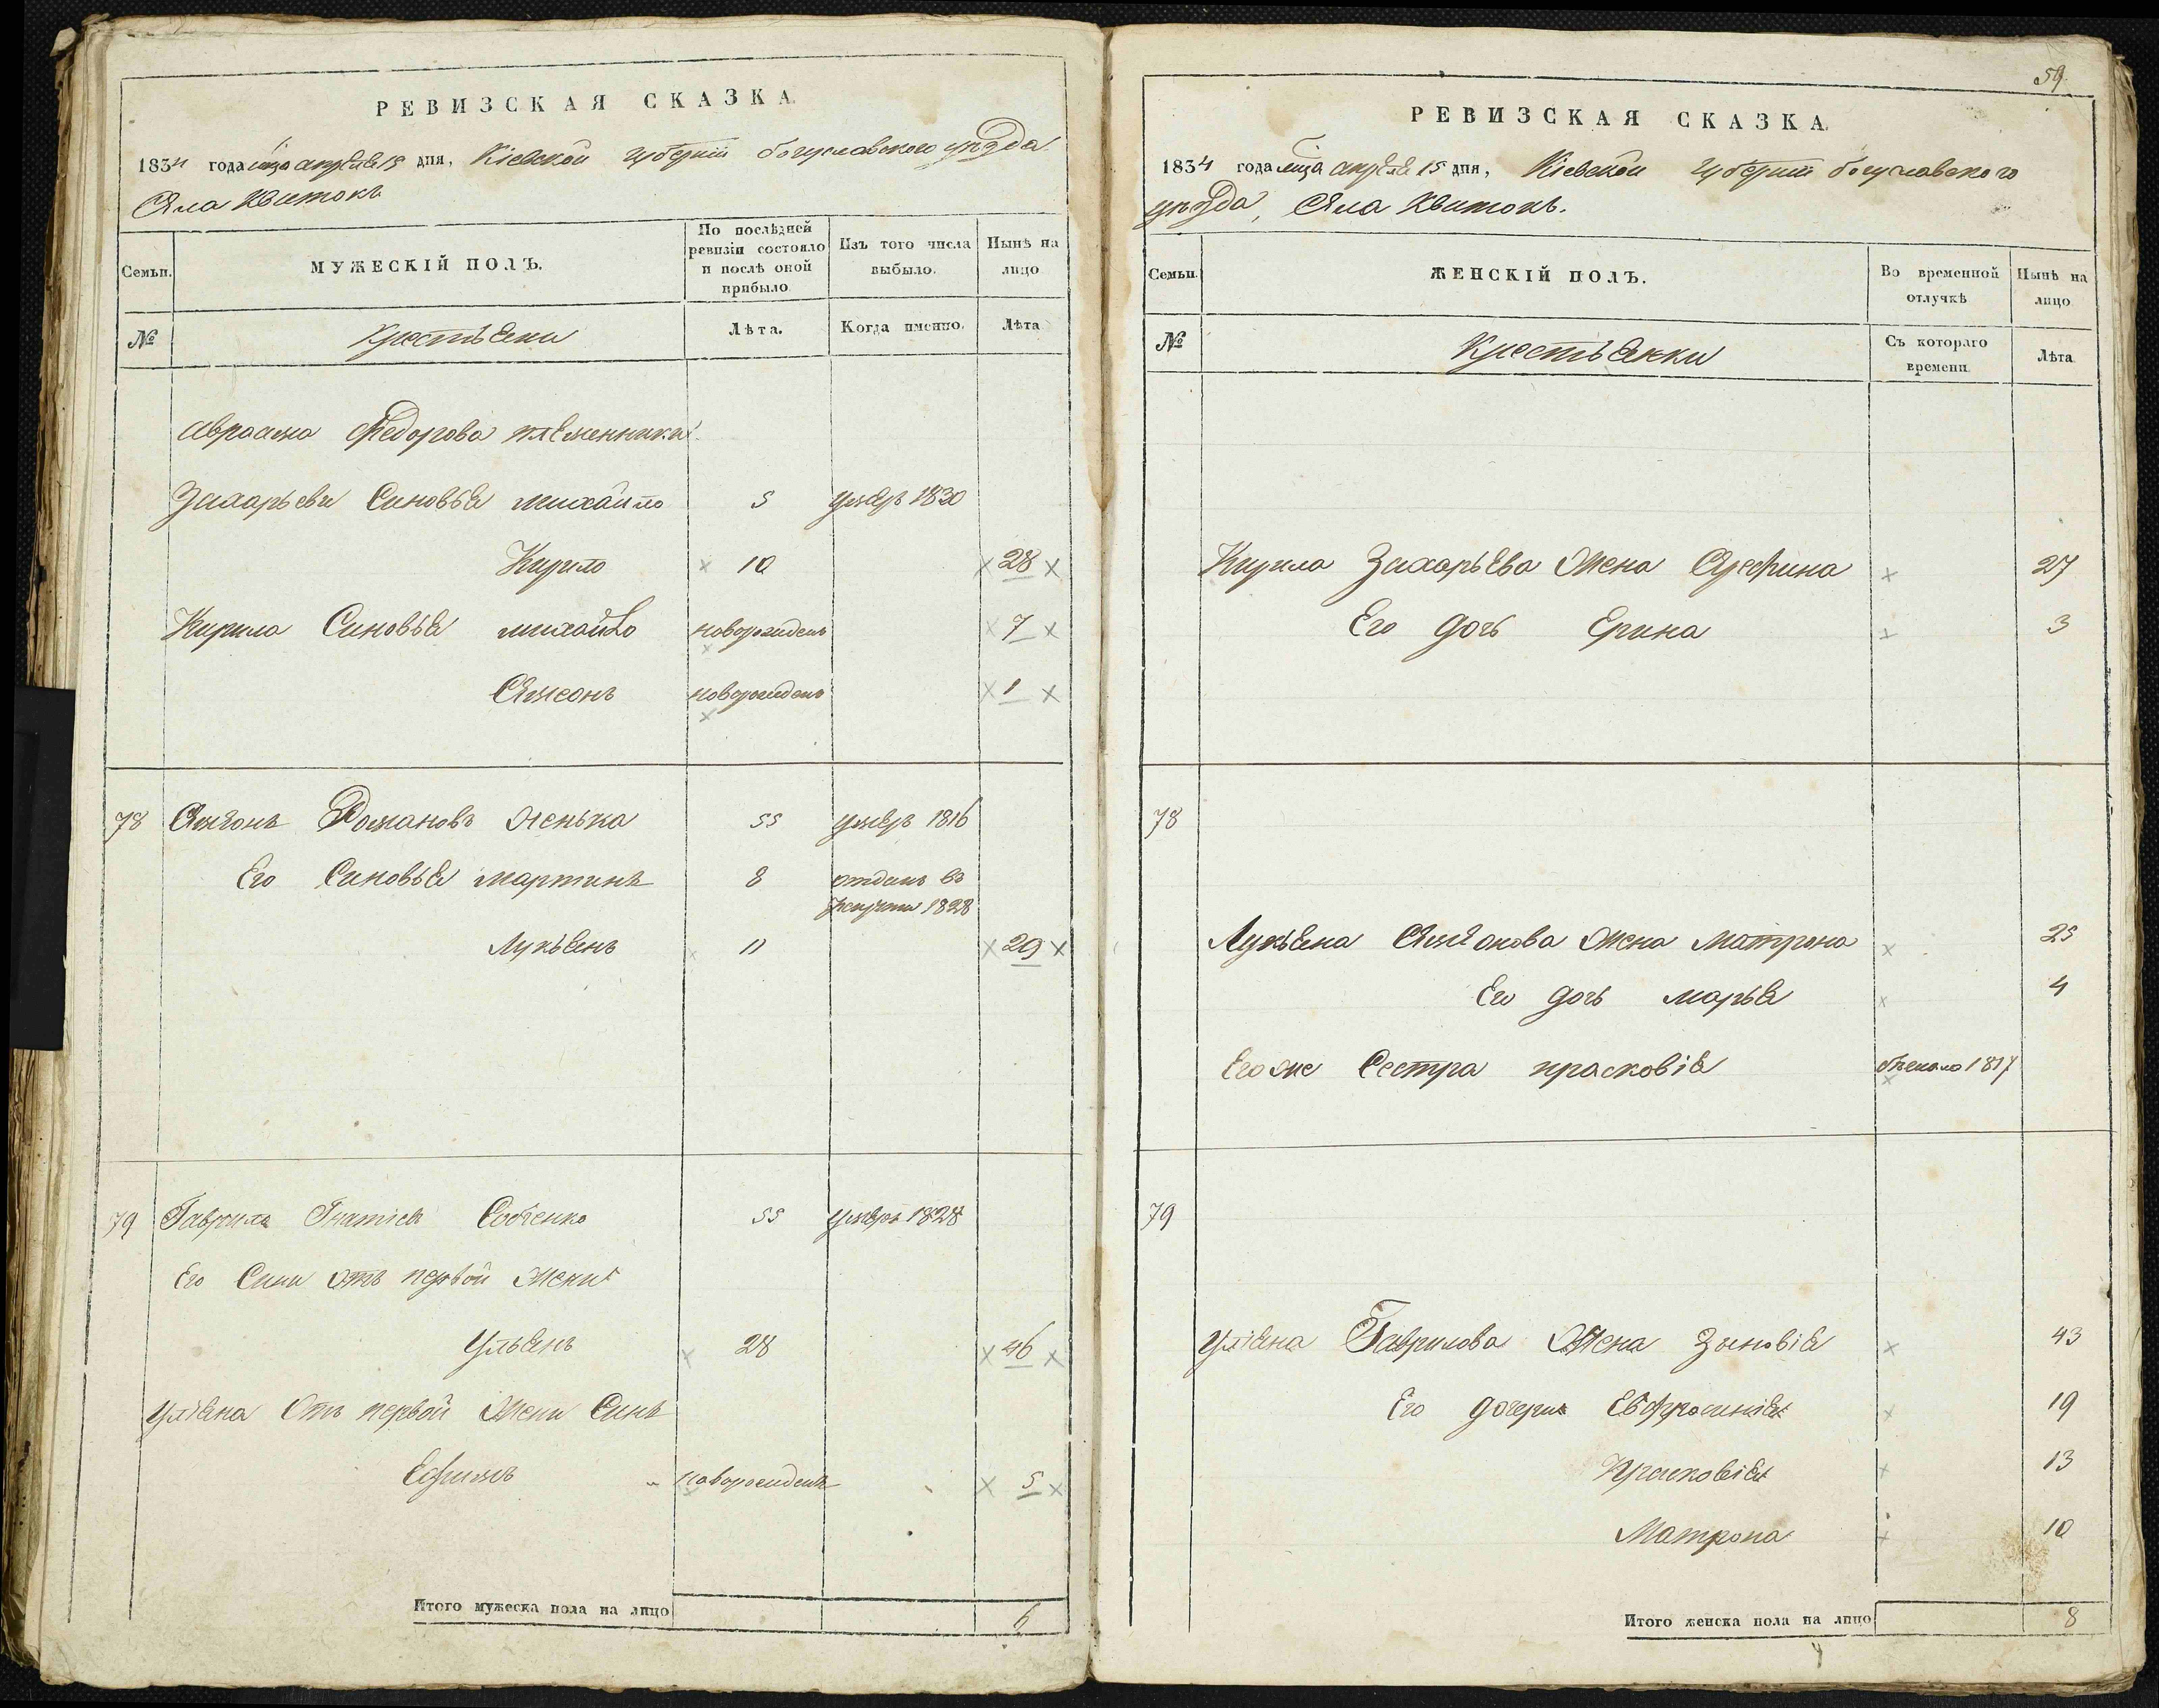 РЕВИЗСКАЯ СКАЗКА
1834 года мца апреля 15 дня, Кіевской губерніи богуславского уезда
Села Квитокъ
Семьи.
МУЖЕСКІЙ ПОЛЪ.
По послѣдней ревизіи состояло и послѣ оной прибыло
Изъ того числа выбыло.
Нынѣ на лицо
№
Крестьяни
Лѣта.
Когда именно.
Лѣта
Авраама Федорова племенники
Захарьеви Синовья михайло 5 умеръ 1830
Кирило 10 28
Кирила Синовья михайло новорожденъ 7
Семеонъ новорожденъ 1
78 Семіонъ Романовъ 55 умеръ 1816
Его Синовья мартинъ 8 отданъ въ
рекруты 1828
Лукьянъ 11 29
79 Гаврила Игнатіевъ Собченко 55 умеръ 1828
Его Сини отъ первой жени
Ульянъ 28 46
Уліяна Отъ первой Жени Синъ
Ефимъ новорожденъ 5
Итого мужеска пола на лицо 6
59
РЕВИЗСКАЯ СКАЗКА
1834 года мца апреля 15 дня, Кіевской губерніи богуславского
уезда, Села Квитокъ.
Семьи.
ЖЕНСКІЙ ПОЛЪ.
Во временной отлучкѣ
Нынѣ на лицо
№
Крестьянки
Съ котораго времени
Лѣта
Кирила Захарьева Жена 27
Его дочь Ерина 3
78
Лукьяна Семіонова Жена Матрона 25
Его дочь марья 4
Его же Сестра прасковія бежала 1817
79
Уліяна Гаврилова Жена Зиновія 43
Его дочери Евфросинія 19
Прасковія 13
Матрона 10
Итого женска пола на лицо 8